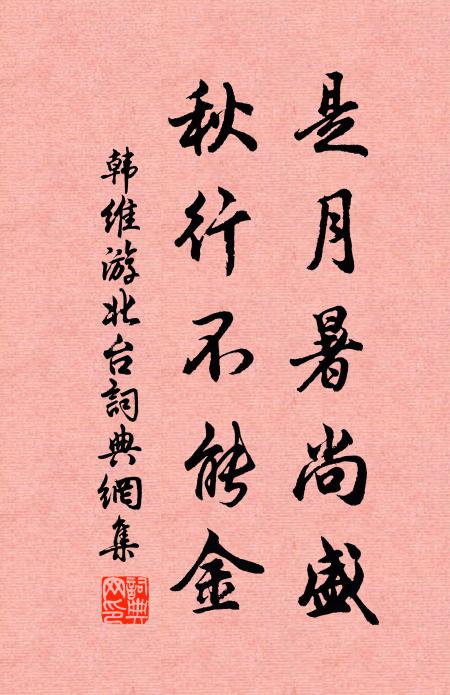 是月暑尚盛
秋行不能金
韩维游北台詞典網集
詞典网印